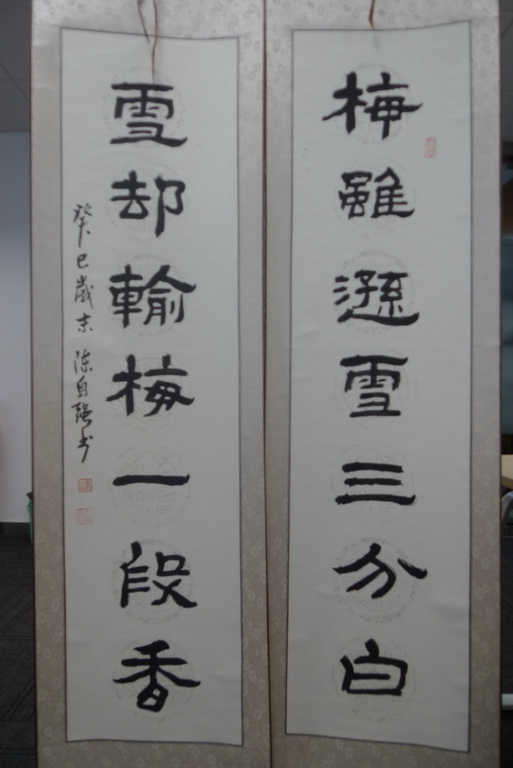 梅雖遜雪三分白
雪却輸梅一段香
癸巳歲末 陈自强书